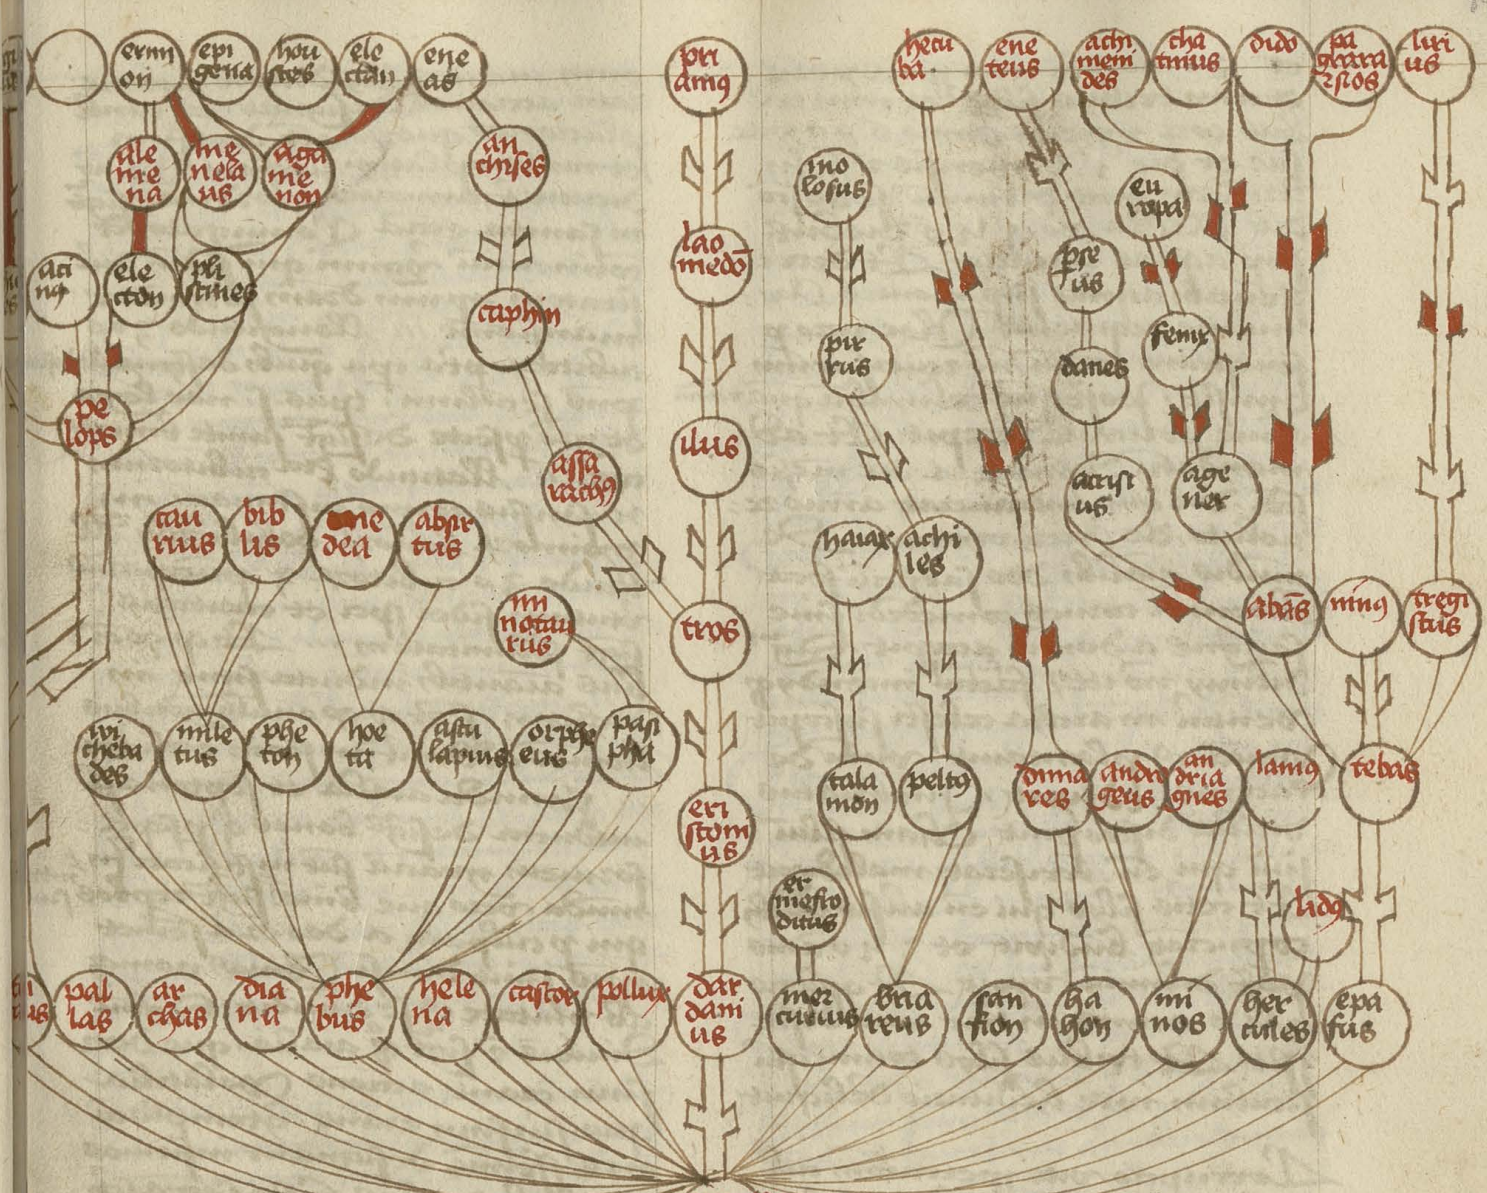 ermi
on
epi
gena
hou
stes
ele
ctan
ene
as
pri
amꝯ
hecu
ba
ene
teus
achi
meni
des
cha
tinus
dido
liri
us
ale
me
na
me
nela
us
aga
me
non
an
chises
mo
losus
eu
ropa
ele
cton
pli
stines
lao
medō
pse
us
caphin
pir
rus
fenix
danes
pe
lops
ilus
assa
rachꝯ
acrisi
us
age
ner
cau
nus
bib
lis
me
dea
absir
tus
haiax
achi
les
mi
notau
rus
tros
abās
ninꝯ
tregi
stus
wi
cheba
des
mile
tus
phe
ton
hoe
ta
astu
lapius
orphe
eus
pasi
pha
tala
mon
peleꝯ
dinna
res
andro
geus
an
dria
gnes
lamꝯ
tebas
eri
stoni
us
er
mefro
ditus
lidꝯ
pal
las
ar
chas
dia
na
phe
bus
hele
na
castor
pollux
dar
dani
us
mer
curius
bria
reus
fan
fion
ha
hon
mi
nos
her
cules
epa
fus